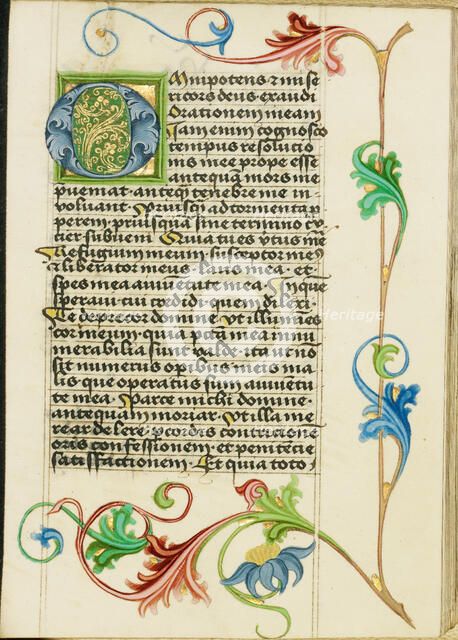 Omnipotens & mise
ricors deus exaudi
orationem meam
Iam enim cognosco
tempus resolucio
nis mee prope esse
antequam mors me
pueniat · anteq̄ tenebre me in
voluant · Priusq̄ ad tormenta p
perem priusquā sine termino cru
cier subueni · Quia tu es v̄tus mea
Refugium meum susceptor meus
& liberator meus · laus mea · et
spes mea a iuuētute mea · In quē
speraui cui credidi · quem dilexi
Ne despector domine · Vt illumines
cor meum · quia pctā mea innu
merabilia sunt valde · ita ut no
sit numerus operibus meis ma
lis que operatus sum a iuuētu
te mea · Parce michi domine
antequam moriar · Vt illa me
rear delere p cordis contricione
oris confessionem · et penitēcie
satisfactionem · Et quia toto
Heritage